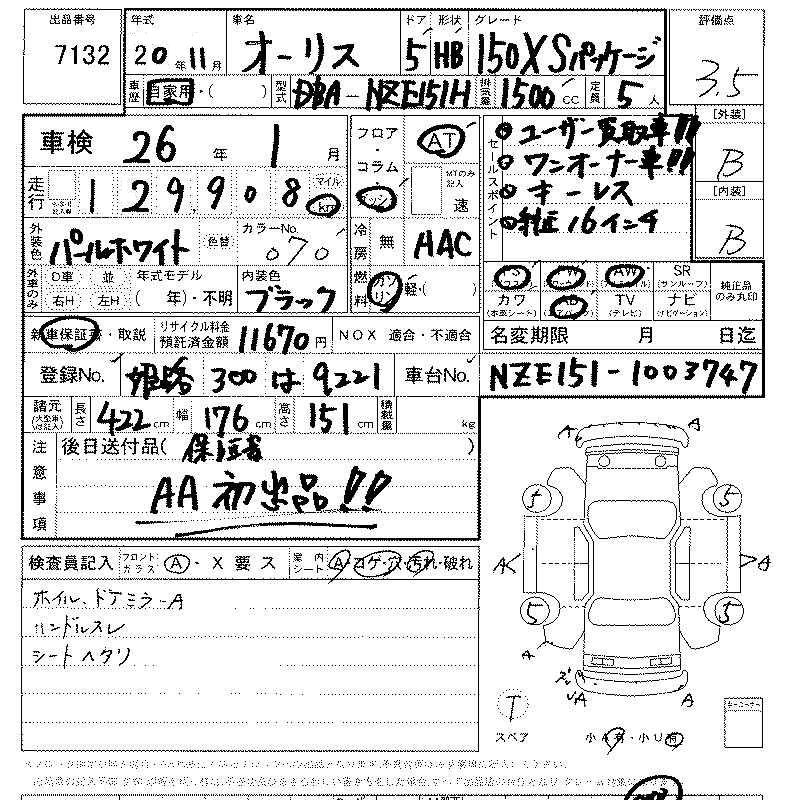 出品番号 7132
年式 20年11月 車名 オーリス ドア 5 形状 HB グレード 150X Sパッケージ
評価点 3.5
車歴 自家用・( ) 型式 DBA-NZE151H 排気量 1500cc 定員 5人
[外装] B
[内装] B
車検 26年 1月
走行 129,908 マイル km
フロア・コラム AT
MTのみ記入 速
セールスポイント
ユーザー買取車!!
ワンオーナー車!!
キーレス
純正16インチ
外装色 パールホワイト 色替 カラーNo. 070
冷房 無 HAC
外車のみ D車 並 右H 左H 年式モデル( 年)・不明 内装色 ブラック
燃料 ガソリン 軽・( )
PS PW AW SR (サンルーフ)
カワ (本革シート) AB (エアバッグ) TV (テレビ) ナビ (ナビゲーション)
純正品のみ丸印
新車保証書・取説 リサイクル料金預託済金額 11670円 NOX 適合・不適合
名変期限 月 日迄
登録No. 姫路 300 は 9221 車台No. NZE151-1003747
諸元 長さ 422cm 幅 176cm 高さ 151cm 積載量 kg
注意事項
後日送付品( 保証書 )
AA初出品!!
検査員記入 フロントガラス A・X 要 ス 室内シート A・コゲ・穴・汚れ・破れ
ホイル、ドアミラーA
ハンドルスレ
シートヘタリ
A A
5 5
A A
5 5
A
A A
T
スペア
小A有・小U有